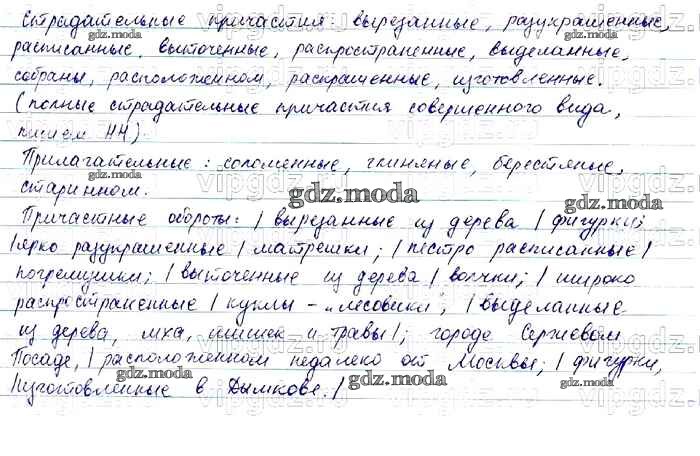 Страдательные причастия: вырезанные, разукрашенные,
расписанные, выточенные, распространенные, выделанные,
собраны, расположенном, раскрашенные, изготовленные.
(полные страдательные причастия совершенного вида,
пишем НН).
Прилагательные: соломенные, глиняные, берестяные,
старинном.
gdz.moda
Причастные обороты: | вырезанные из дерева | фигурки;
| ярко разукрашенные | матрешки; | пестро расписанные |
погремушки; | выточенные из дерева | волчки; | широко
распространенные | куклы – „лесовики"; | выделанные
из дерева, мха, шишек и травы |; городе Сергиевом
Посаде, | расположенном недалеко от Москвы; | фигурки,
| изготовленные в Дымкове. |
gdz.moda